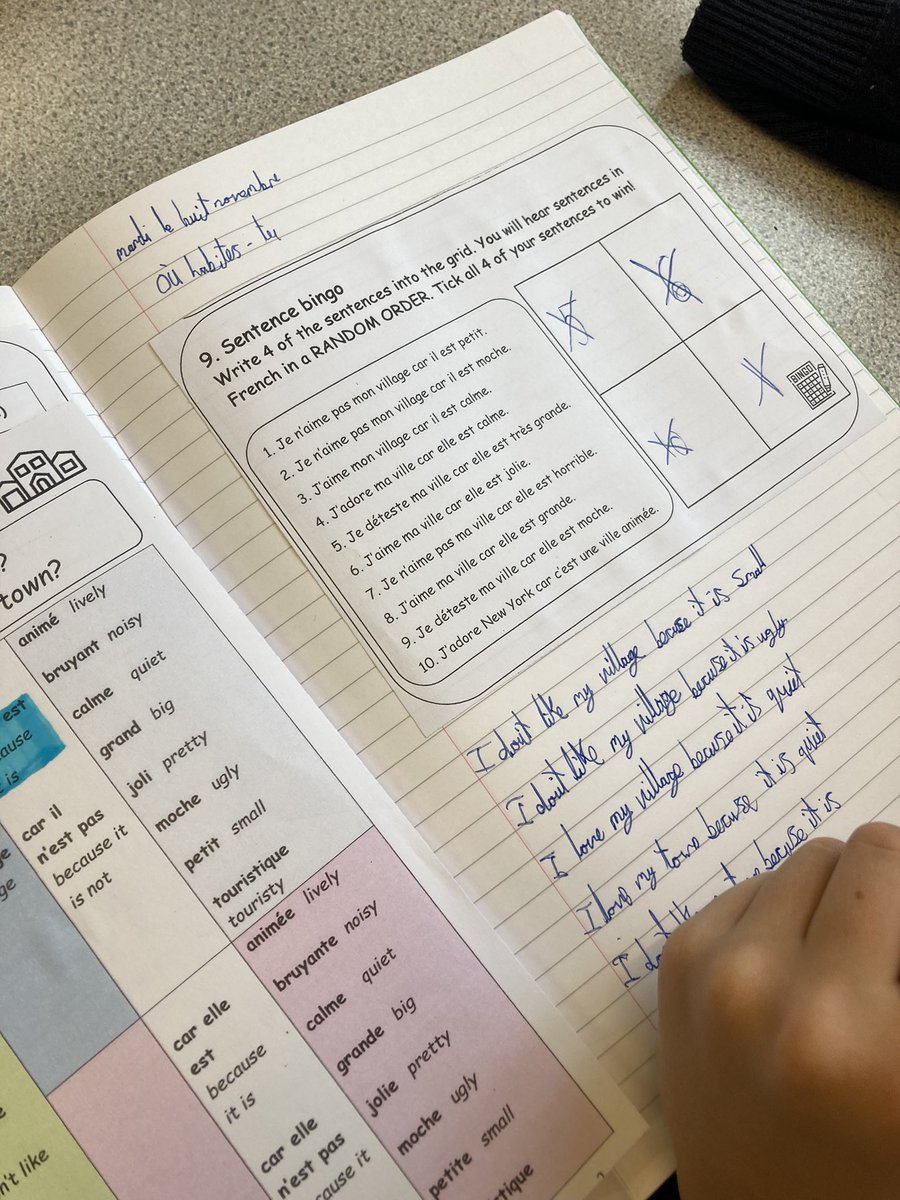 mardi le huit novembre
Où habites-tu
9. Sentence bingo
Write 4 of the sentences into the grid. You will hear sentences in
French in a RANDOM ORDER. Tick all 4 of your sentences to win!
1. Je n'aime pas mon village car il est petit.
2. Je n'aime pas mon village car il est moche.
3. J'aime mon village car il est calme.
4. J'adore ma ville car elle est calme.
5. Je déteste ma ville car elle est très grande.
6. J'aime ma ville car elle est jolie.
7. Je n'aime pas ma ville car elle est horrible.
8. J'aime ma ville car elle est grande.
9. Je déteste ma ville car elle est moche.
10. J'adore New York car c'est une ville animée.
BINGO
I don't like my village becuse it is small
I don't like my village becuse it is ugly
I love my village becuse it is quiet
I love my town becuse it is quiet
because it is
?
town?
animé lively
bruyant noisy
calme quiet
grand big
joli pretty
moche ugly
petit small
touristique
touristy
est
is
car il
n'est pas
because it
is not
animée lively
bruyante noisy
calme quiet
grande big
jolie pretty
moche ugly
petite small
car elle
est
because
it is
car elle
n'est pas
n't like